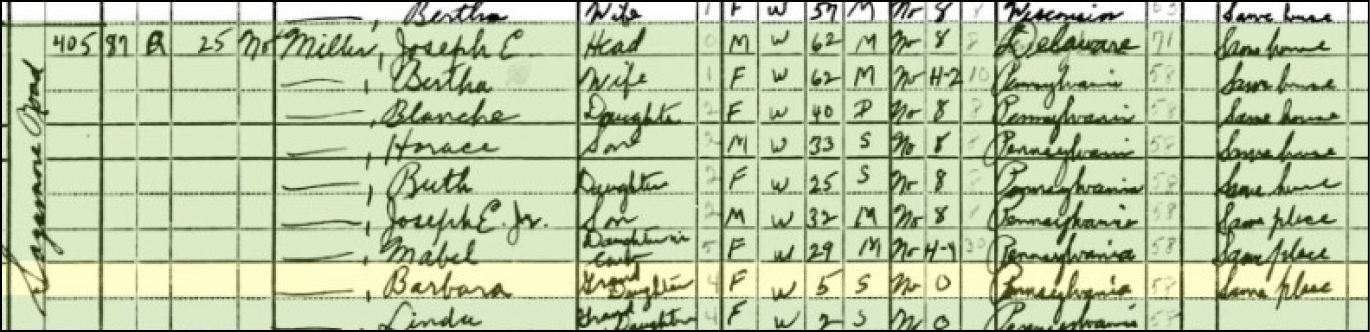 Bertha Wife 1 F W 57 M No 8 8 Wisconsin 63 Same house
405 87 R 25 No Miller, Joseph E. Head 0 M W 62 M No 8 8 Delaware 71 Same house
—, Bertha Wife 1 F W 62 M No H-2 10 Pennsylvania 58 Same house
—, Blanche Daughter 2 F W 40 D No 8 8 Pennsylvania 58 Same house
—, Horace Son 2 M W 33 S No 8 8 Pennsylvania 58 Same house
—, Buth Daughter 2 F W 25 S No 8 Pennsylvania 58 Same house
—, Joseph E. Jr. Son 2 M W 32 M No 8 Pennsylvania 58 Same place
—, Mabel Daughter in Law 5 F W 29 M No H-4 30 Pennsylvania 58 Same place
—, Barbara Grand Daughter 4 F W 5 S No 0 Pennsylvania 58 Same place
—, Linda Grand Daughter 4 F W 2 S No 0 Pennsylvania
Road